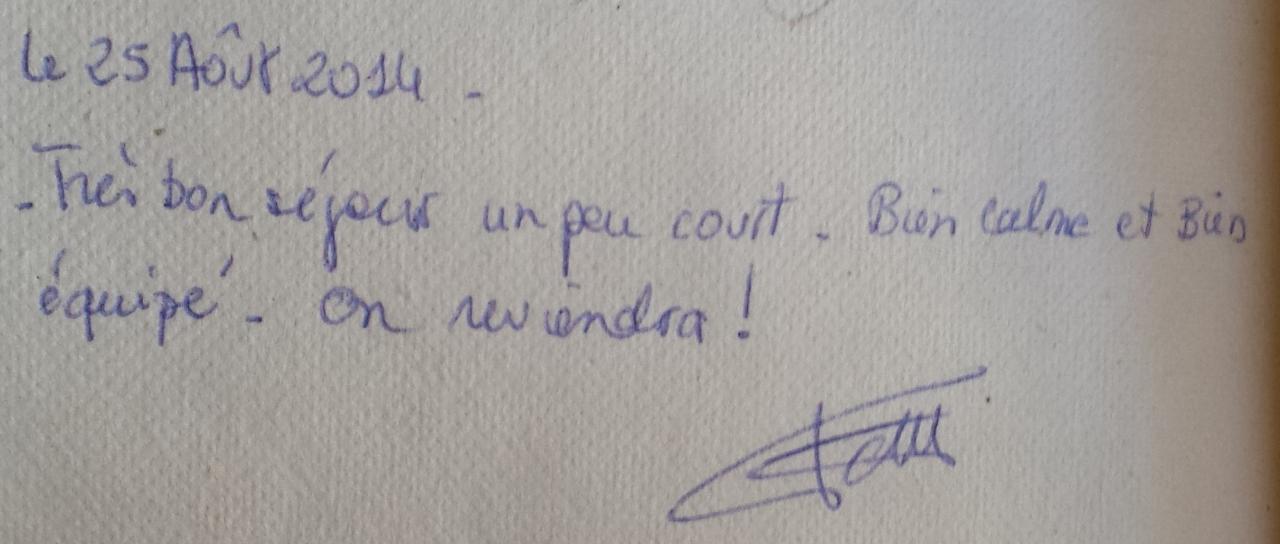 le 25 Août 2014 -
- Très bon séjour un peu court. Bien calme et Bien
équipé - On reviendra !